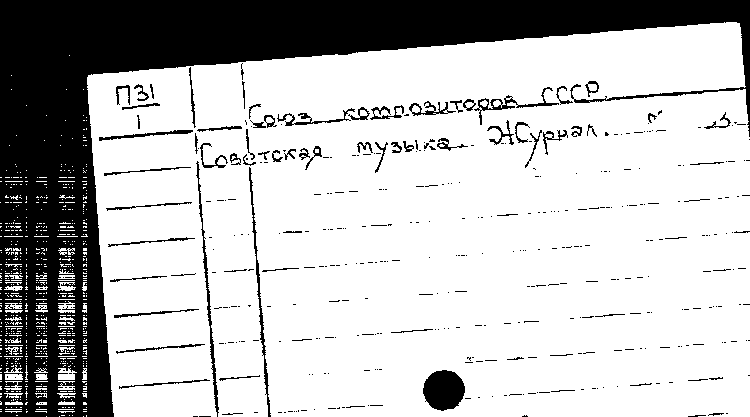 П31
1
Союз композиторов СССР.
Советская музыка. Журнал.